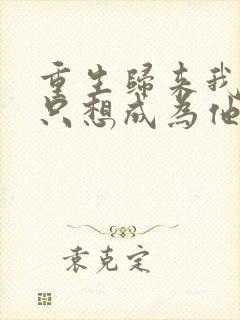 重生歸来我
只想成為他
袁克定